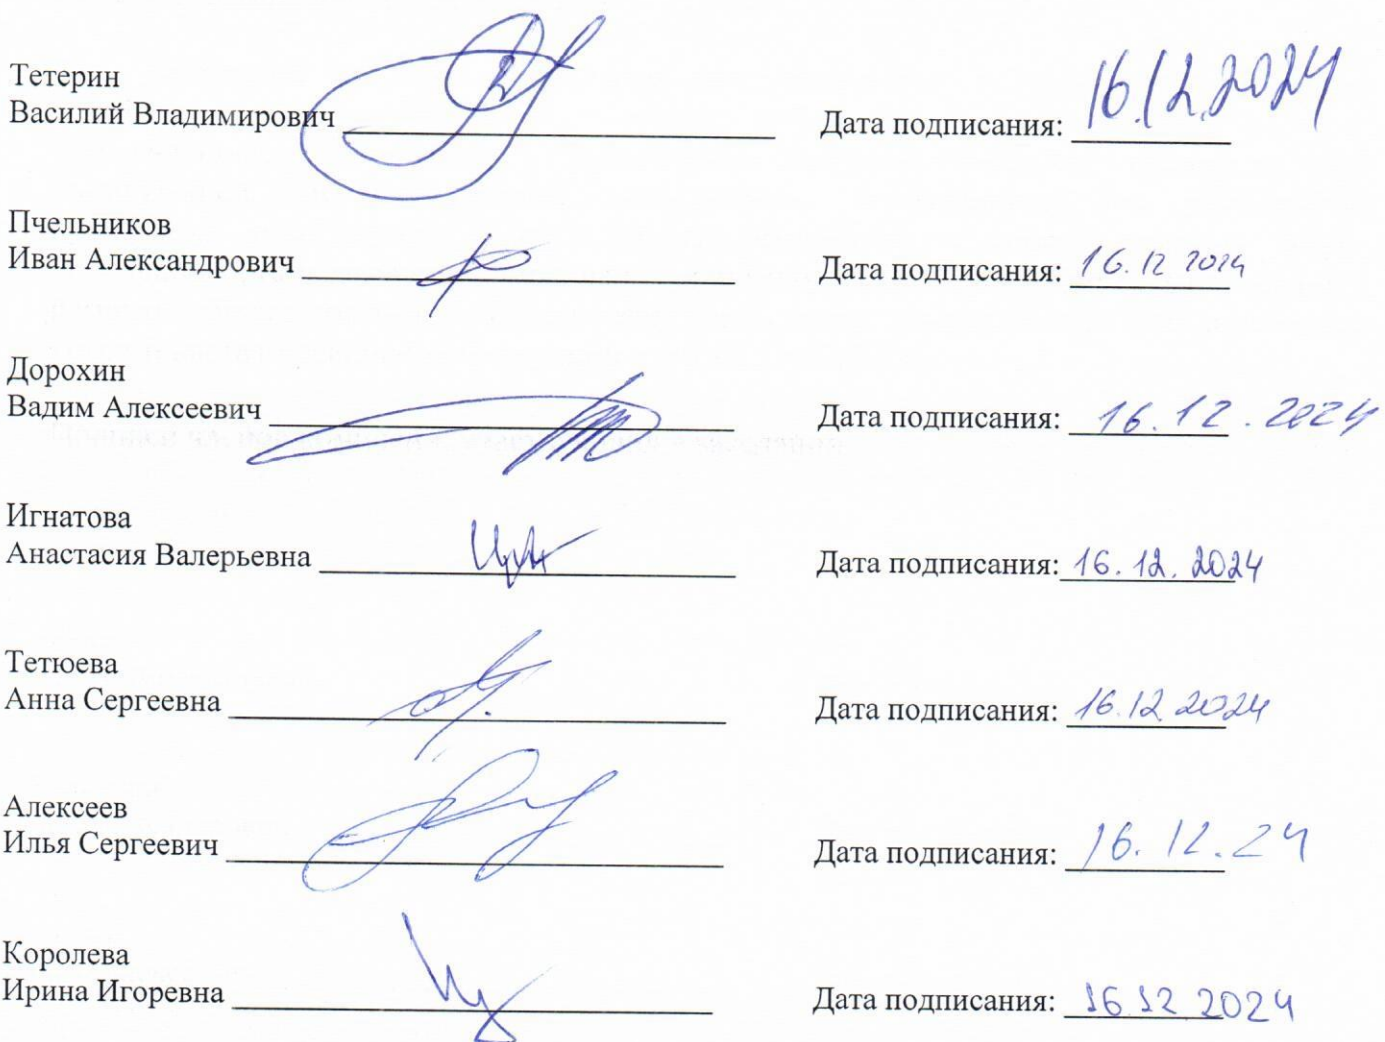 Тетерин
Василий Владимирович Дата подписания: 16.12.2024
Пчельников
Иван Александрович Дата подписания: 16.12 2024
Дорохин
Вадим Алексеевич Дата подписания: 16.12.2024
Игнатова
Анастасия Валерьевна Дата подписания: 16.12.2024
Тетюева
Анна Сергеевна Дата подписания: 16.12.2024
Алексеев
Илья Сергеевич Дата подписания: 16.12.24
Королева
Ирина Игоревна Дата подписания: 16 12 2024